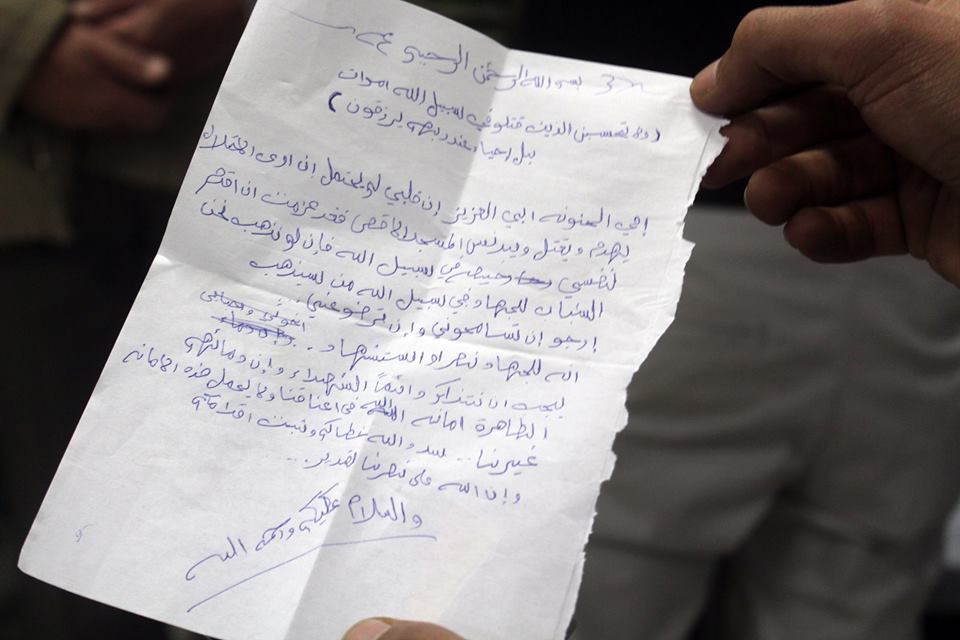 بسم الله الرحمن الرحيم
(ولا تحسبن الذين قتلو في سبيل الله اموات
بل احياء عند ربهم يرزقون)
امي الحنونه ابي العزيز إن قلبي لم يحتمل إن ارى الاحتلال
يهدم ويقتل ويدنس المسجد الاقصى فقد عزمت ان اقدم
نفسي رخيصة في سبيل الله فإن لم نذهب نحن
الشباب للجهاد في سبيل الله من سيذهب
إرجو إن تسامحوني وإن ترضو عني
انه للجهاد نصر او استشهاد .. اخوتي
يجب ان نتذكر دائماً الشهداء وإن دمائهم
الطاهرة امانه في اعناقنا ولا يحمل هذه الامانه
غيرنا ... سدد الله خطاكم وثبت اقدامكم
وإن الله على نصرنا لقدير...
والسلام عليكم ورحمة الله